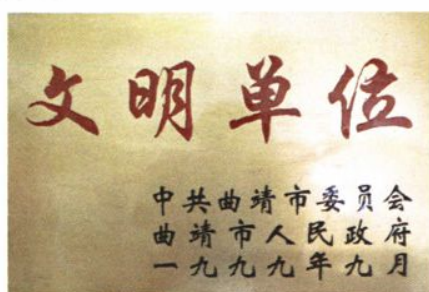 文明单位
中共曲靖市委员会
曲靖市人民政府
一九九九年九月